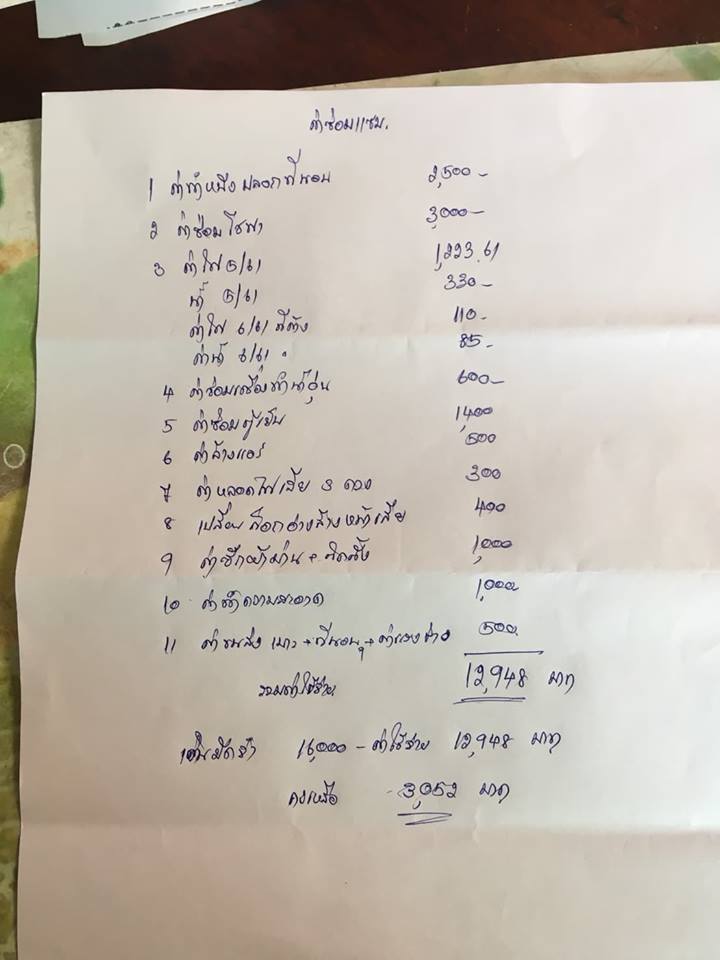 ค่าซ่อมแซม.
1 ค่าทำหนังปลอกที่นอน 2,500-
2 ค่าซ่อมโซฟา 3,000-
3 ค่าไฟ 5/61 1,223.61
น้ำ 5/61 330-
ค่าไฟ 6/61 110-
ค่าน้ำ 6/61 " 85-
4 ค่าซ่อมเครื่องทำน้ำอุ่น 600-
5 ค่าซ่อมตู้เย็น 1,400
6 ค่าล้างแอร์ 500
7 ค่าหลอดไฟเสีย 3 ดวง 300
8 เปลี่ยนก๊อกอ่างล้างหน้าเสีย 400
9 ค่าซักผ้าม่าน + ติดตั้ง 1,000
10 ค่าทำความสะอาด 1,000
11 ค่าขนส่ง เบาะ + ที่นอน + ค่าแรงช่าง 500.
รวมค่าใช้จ่าย 12,948 บาท
เงินมัดจำ 16,000 - ค่าใช้จ่าย 12,948 บาท
คงเหลือ 3,052 บาท